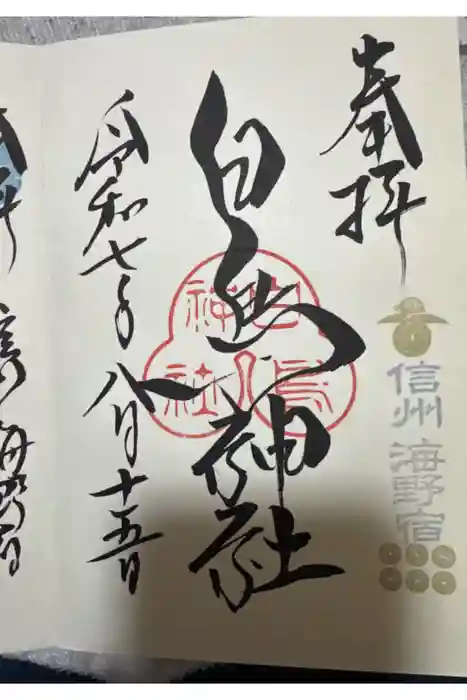 奉拝
信州 海野宿
白鳥神社
白鳥
神社
令和七年八月十五日